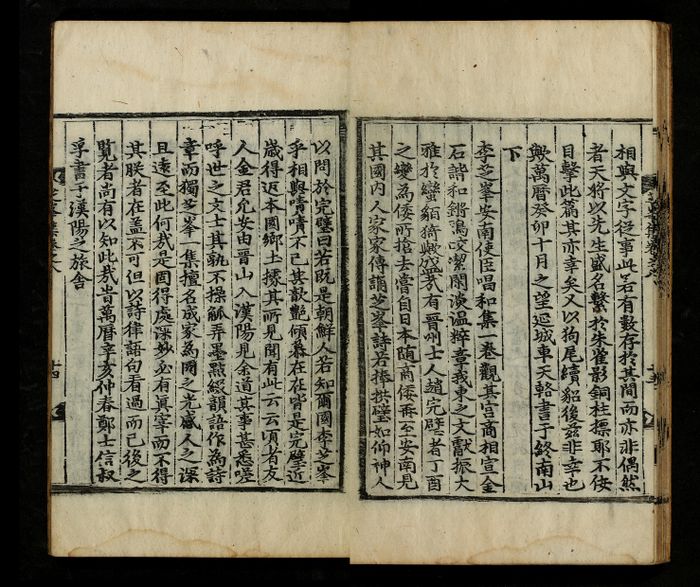 相與文字從事此若有數存扵其間而亦非偶然
者天將以先生盛名繫扵朱崔影銅柱標耶不佞
目擊此篇其亦幸矣又以狗尾續貂後茲非幸也
歟萬曆癸卯十月之望延城車天輅書于終南山
下
李芝峯安南使臣唱和集一卷觀其宫商相宣金
石諧和鏘鳴皎潔閑淡溫粹章我東之文獻振大
雅扵蠻貊猗歟盛哉有晋州士人趙完璧者丁酉
之變為倭所搶去嘗自日本随商倭再至安南見
其國内人家家傳誦芝峯詩若捧拱璧如仰神人
以問扵完璧曰若既是朝鮮人若知爾國李芝峯
乎相與嘖嘖不已其歆艷傾慕在在皆是完璧近
歲得返本國鄉土據其所見聞有此云云頃者友
人金君允安由晋山入漢陽見余道其事甚悉噫
呼世之文士其孰不操觚弄墨點綴韻語作為詩
章而獨芝峯一集擅名成家為國之光感人之深
且遠至此何哉是固得處深妙必有眞宰而不得
其朕者在盖不可但以詩律語句看過而已後之
覽者尚有以知此哉旹萬曆辛亥仲春鄭士信叔
孚書于漢陽之旅舎
十四